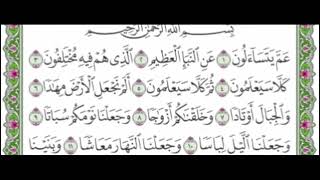 بِسْمِ اللَّهِ الرَّحْمَٰنِ الرَّحِيمِ
عَمَّ يَتَسَاءَلُونَ ١ عَنِ النَّبَإِ الْعَظِيمِ ٢ الَّذِي هُمْ فِيهِ مُخْتَلِفُونَ ٣
كَلَّا سَيَعْلَمُونَ ٤ ثُمَّ كَلَّا سَيَعْلَمُونَ ٥ أَلَمْ نَجْعَلِ الْأَرْضَ مِهَٰدًا ٦
وَالْجِبَالَ أَوْتَادًا ٧ وَخَلَقْنَٰكُمْ أَزْوَٰجًا ٨ وَجَعَلْنَا نَوْمَكُمْ سُبَاتًا ٩
وَجَعَلْنَا اللَّيْلَ لِبَاسًا ١٠ وَجَعَلْنَا النَّهَارَ مَعَاشًا ١١ وَبَنَيْنَا